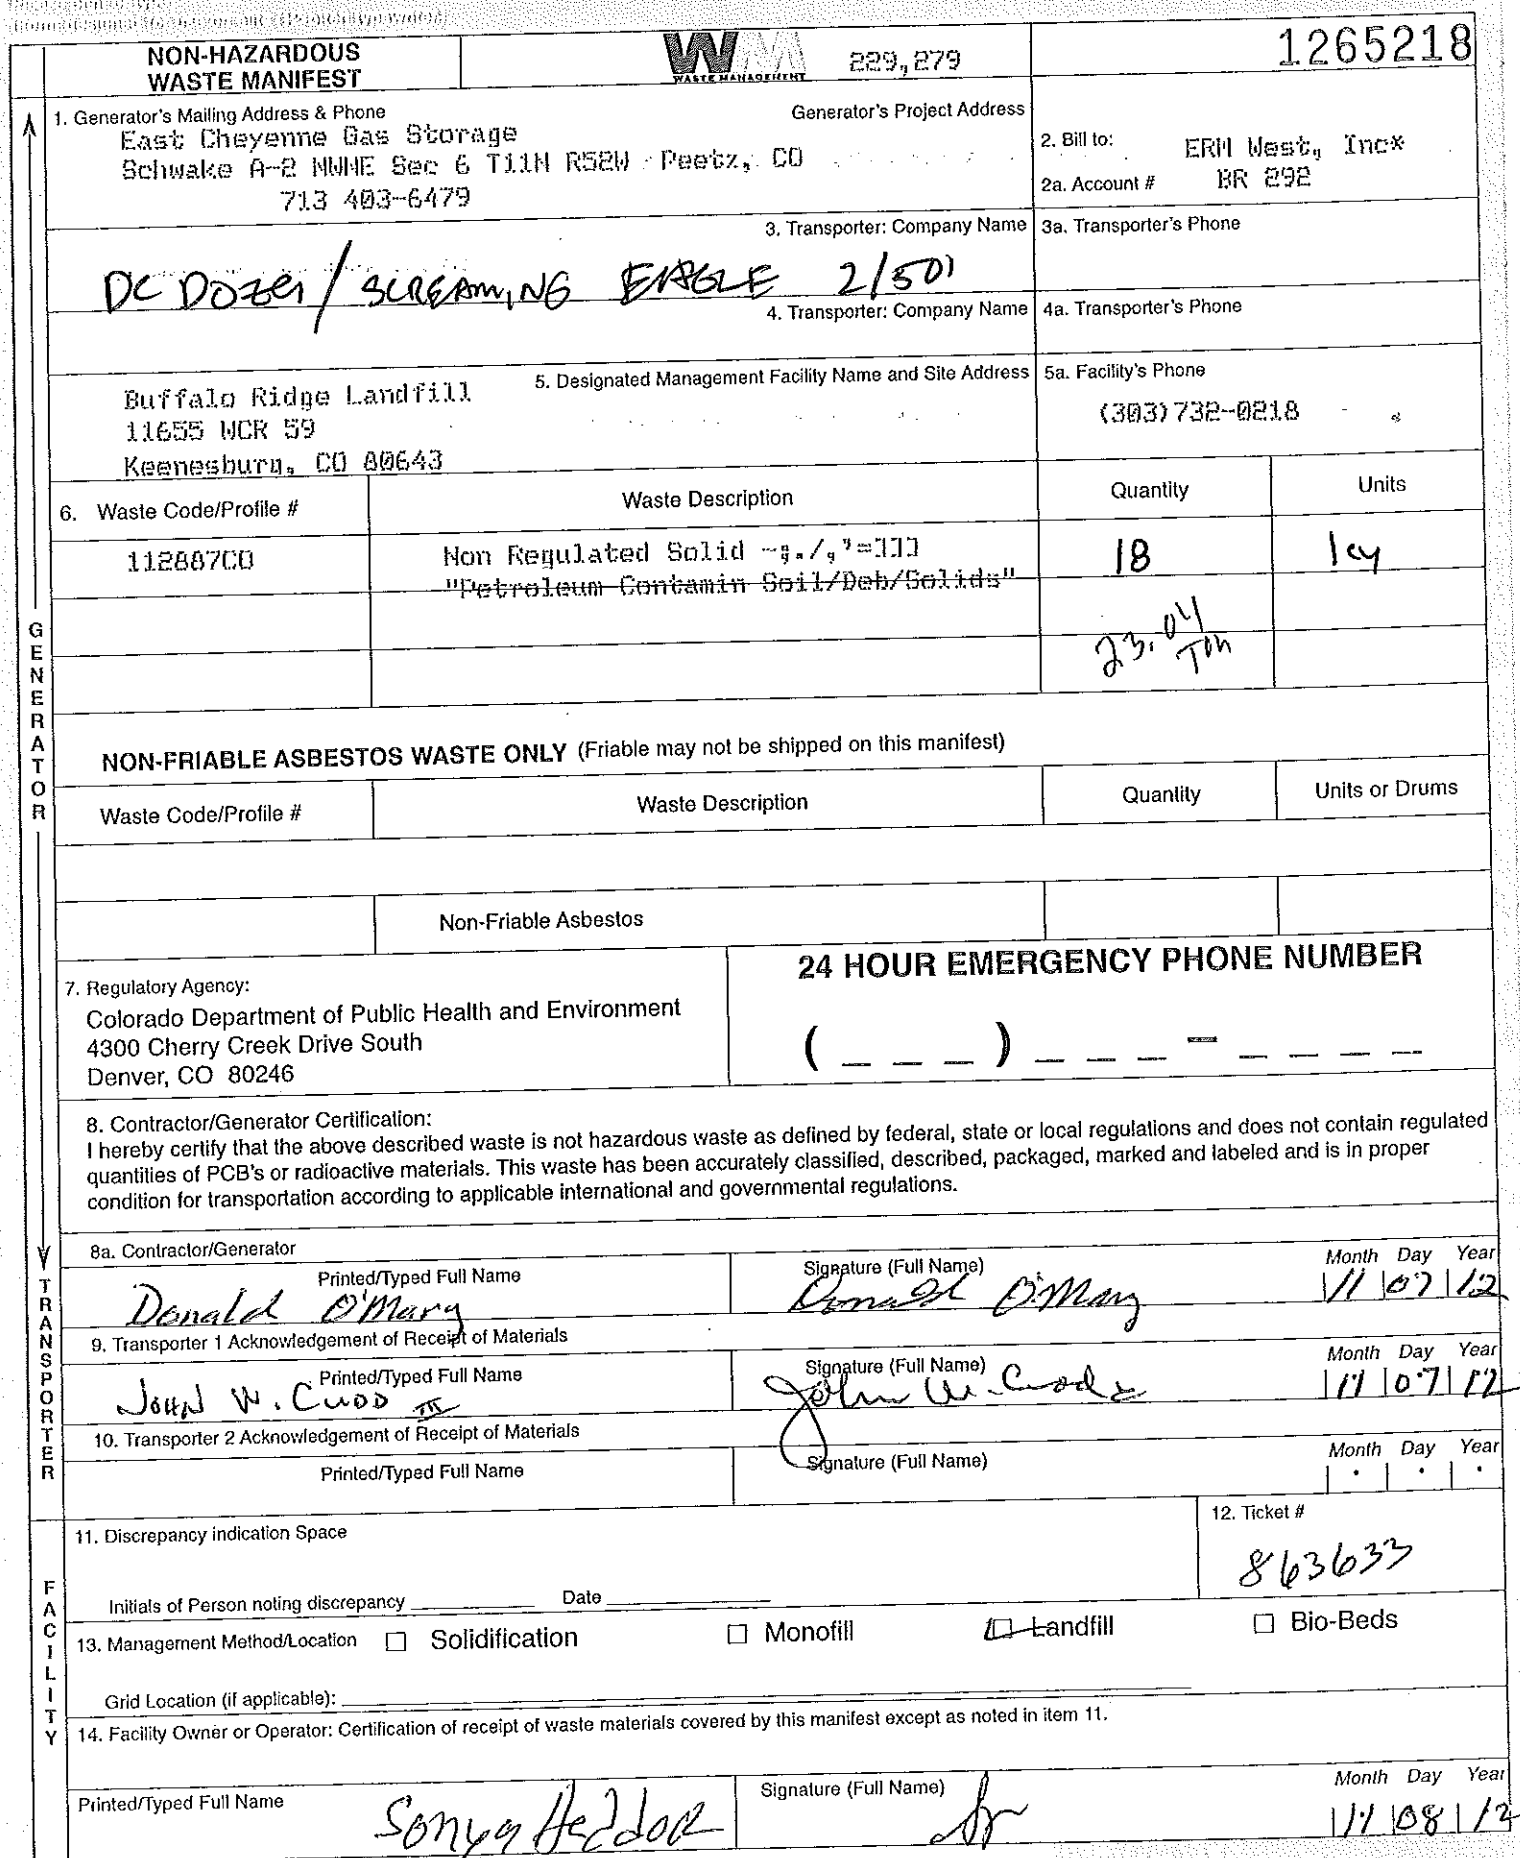 NON-HAZARDOUS
WASTE MANIFEST
WM
WASTE MANAGEMENT
229,279
1265218
1. Generator's Mailing Address & Phone
Generator's Project Address
East Cheyenne Gas Storage
Schwake A-2 NWNE Sec 6 T11N R52W Peetz, CO
713 403-6479
2. Bill to:
ERM West, Inc*
2a. Account #
BR 292
3. Transporter: Company Name
3a. Transporter's Phone
DC DOZER / SCREAMING EAGLE 2/501
4. Transporter: Company Name
4a. Transporter's Phone
5. Designated Management Facility Name and Site Address
5a. Facility's Phone
Buffalo Ridge Landfill
11655 WCR 59
Keenesburg, CO 80643
(303)732-0218
6. Waste Code/Profile #
Waste Description
Quantity
Units
112887CO
Non Regulated Solid -;./,'=]]]
"Petroleum Contamin Soil/Deb/Solids"
18
23.04
Ton
NON-FRIABLE ASBESTOS WASTE ONLY (Friable may not be shipped on this manifest)
Waste Code/Profile #
Waste Description
Quantity
Units or Drums
Non-Friable Asbestos
7. Regulatory Agency:
Colorado Department of Public Health and Environment
4300 Cherry Creek Drive South
Denver, CO 80246
24 HOUR EMERGENCY PHONE NUMBER
( _ _ _ ) _ _ _ - _ _ _ _
8. Contractor/Generator Certification:
I hereby certify that the above described waste is not hazardous waste as defined by federal, state or local regulations and does not contain regulated
quantities of PCB's or radioactive materials. This waste has been accurately classified, described, packaged, marked and labeled and is in proper
condition for transportation according to applicable international and governmental regulations.
8a. Contractor/Generator
Printed/Typed Full Name
Signature (Full Name)
Month Day Year
Donald O'Mary
Donald O'Mary
11 07 12
9. Transporter 1 Acknowledgement of Receipt of Materials
Printed/Typed Full Name
Signature (Full Name)
Month Day Year
JOHN W. CUDD III
John W. Cudd
11 07 12
10. Transporter 2 Acknowledgement of Receipt of Materials
Printed/Typed Full Name
Signature (Full Name)
Month Day Year
11. Discrepancy indication Space
12. Ticket #
863633
Initials of Person noting discrepancy
Date
13. Management Method/Location
Solidification
Monofill
Landfill
Bio-Beds
Grid Location (if applicable):
14. Facility Owner or Operator: Certification of receipt of waste materials covered by this manifest except as noted in item 11.
Printed/Typed Full Name
Signature (Full Name)
Month Day Year
Sonya
11 08 12
GENERATOR
TRANSPORTER
FACILITY